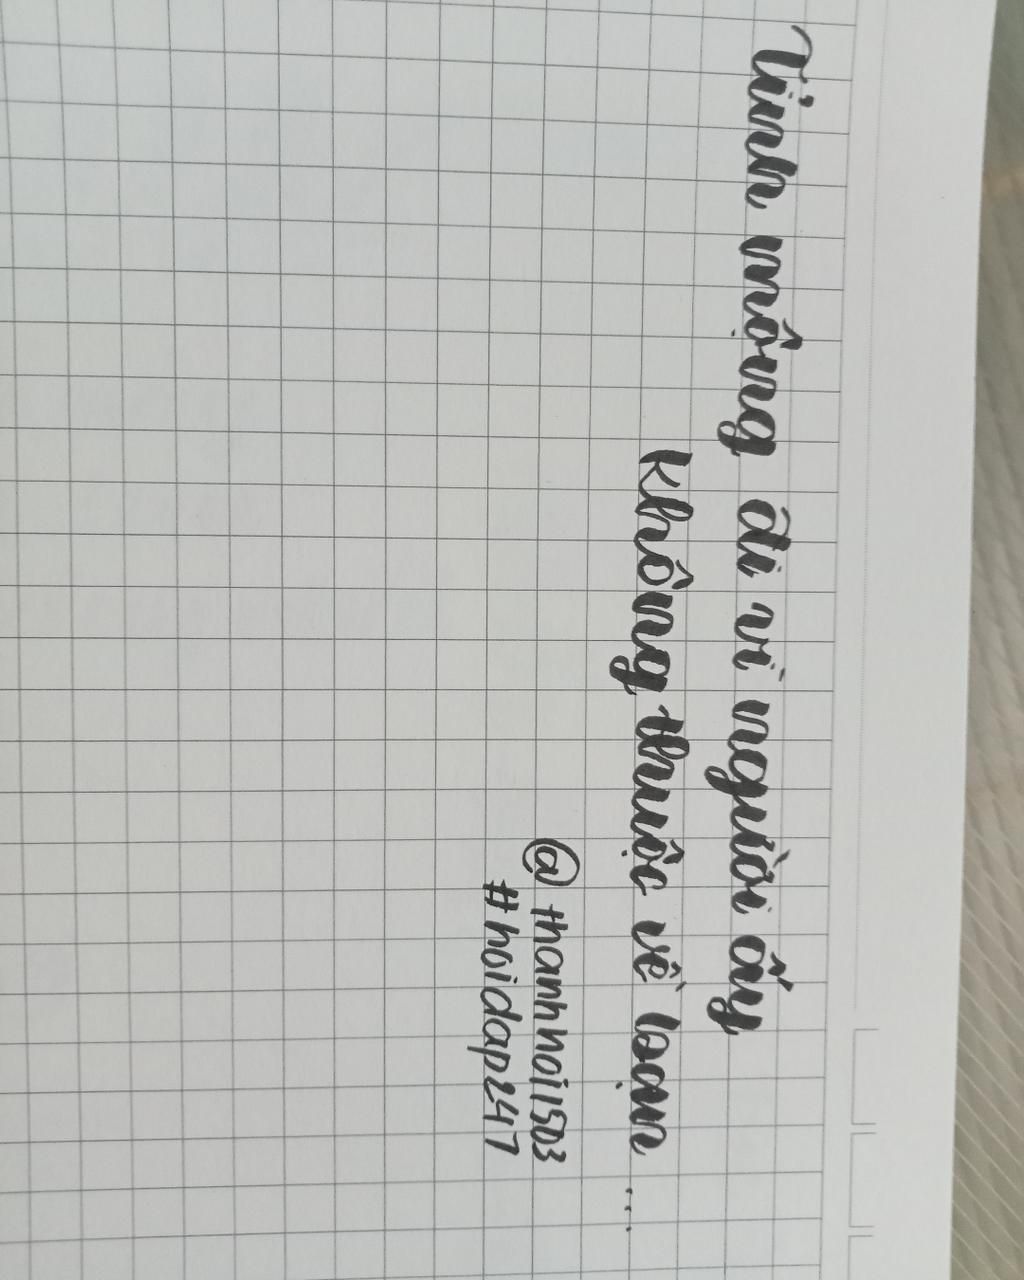 Tỉnh mộng đi vì người ấy
không thuộc về bạn ...
@thanhhoi1503
#hoidap247